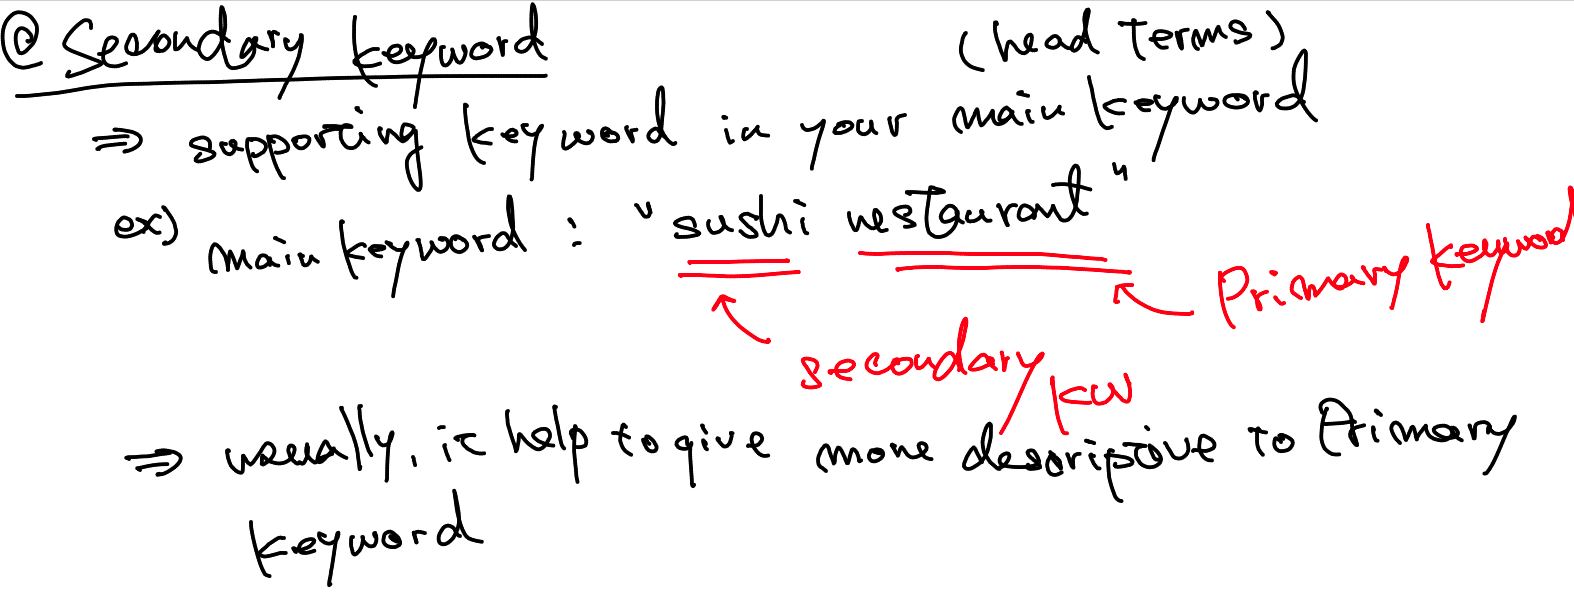 @ Secondary keyword
(head Terms)
⇒ supporting keyword in your main keyword
ex) main keyword : "sushi restaurant"
Primary keyword
secondary kw
⇒ usually, it help to give more descriptive to Primary
keyword